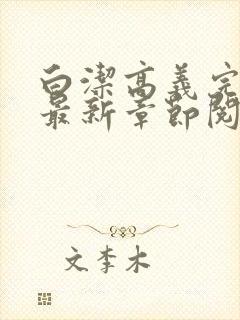 白潔高義完
最新章節閱
文李木